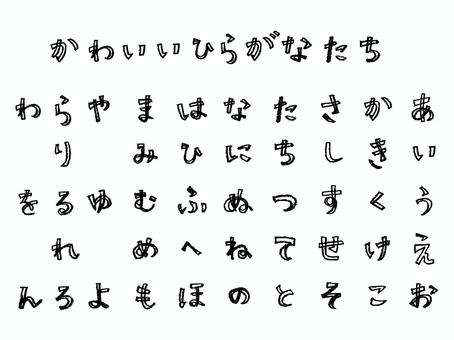 かわいいひらがなたち
わらやまはなたさかあ
りみひにちしきい
をるゆむふぬつすくう
れめへねてせけえ
んろよもほのとそこお